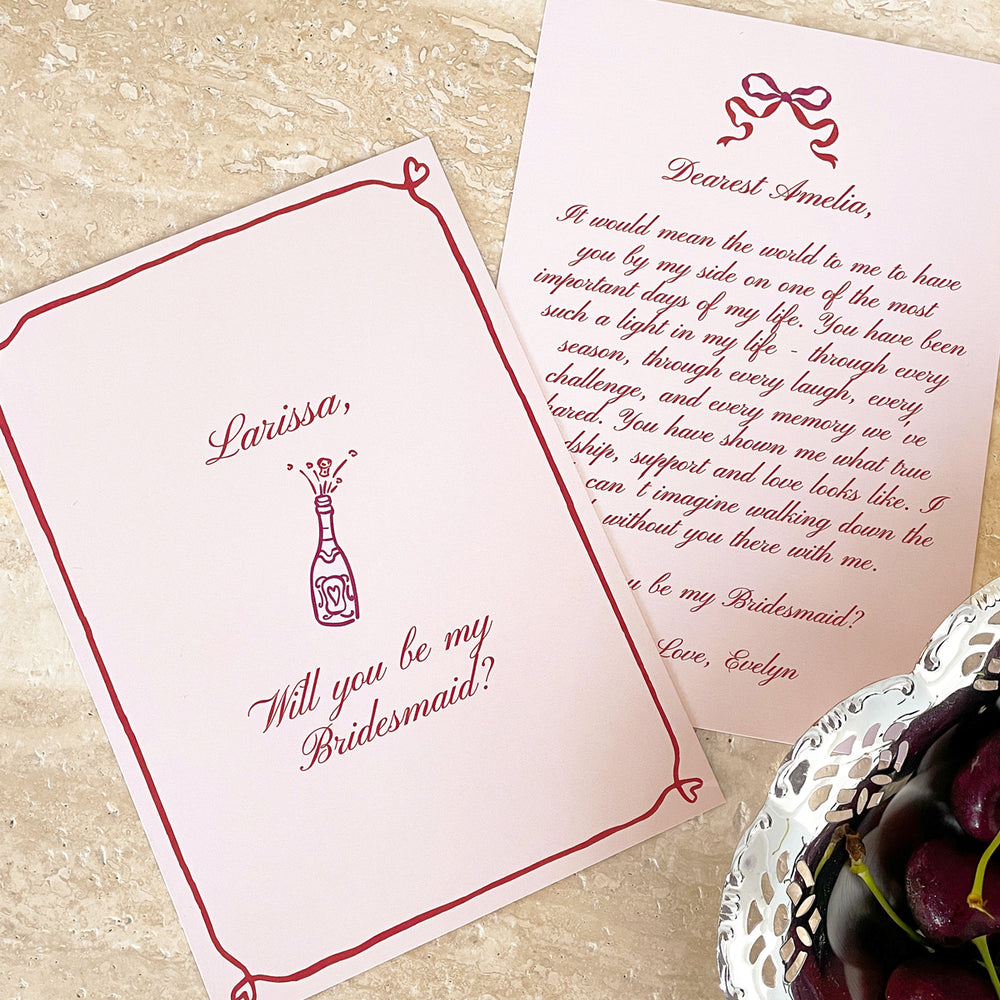 Larissa,
Will you be my
Bridesmaid?
Dearest Amelia,
It would mean the world to me to have
you by my side on one of the most
important days of my life. You have been
such a light in my life - through every
season, through every laugh, every
challenge, and every memory we've
You have shown me what true
support and love looks like. I
can't imagine walking down the
without you there with me.
be my Bridesmaid?
Love, Evelyn